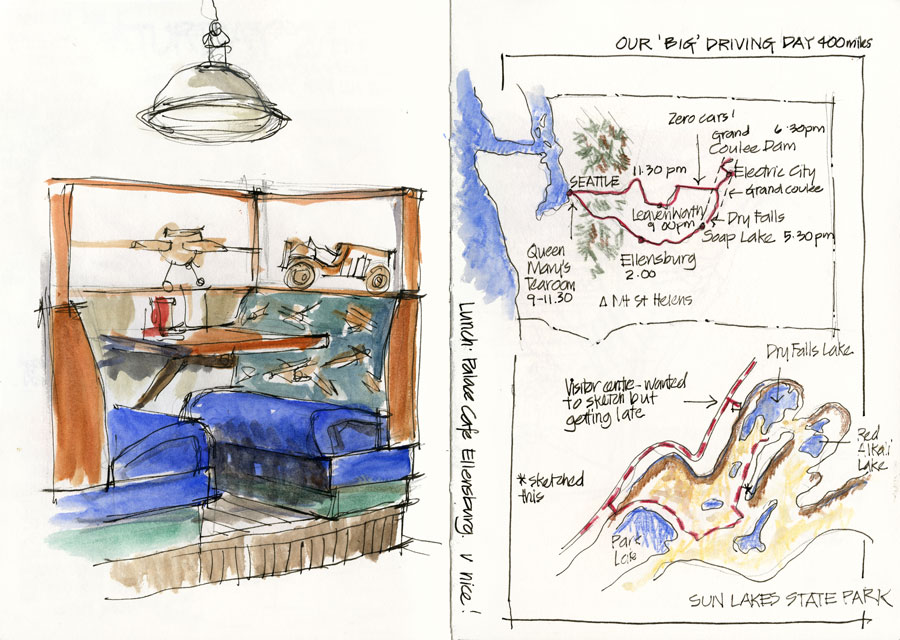 Lunch: Palace Cafe Ellensburg. v nice!
OUR 'BIG' DRIVING DAY 400 miles
Zero cars!
Grand 6.30pm
Coulee Dam
SEATTLE
11.30 pm
Electric City
Grand coulee
Leavenworth
9 00pm
Dry Falls
Soap Lake 5.30pm
Queen
Mary's
Tearoom
9-11.30
Ellensburg
2.00
Δ Mt St Helens
Dry Falls Lake
Visitor centre - wanted
to sketch but
getting late
Red
Alkali
Lake
* sketched
this
Park
Lake
SUN LAKES STATE PARK